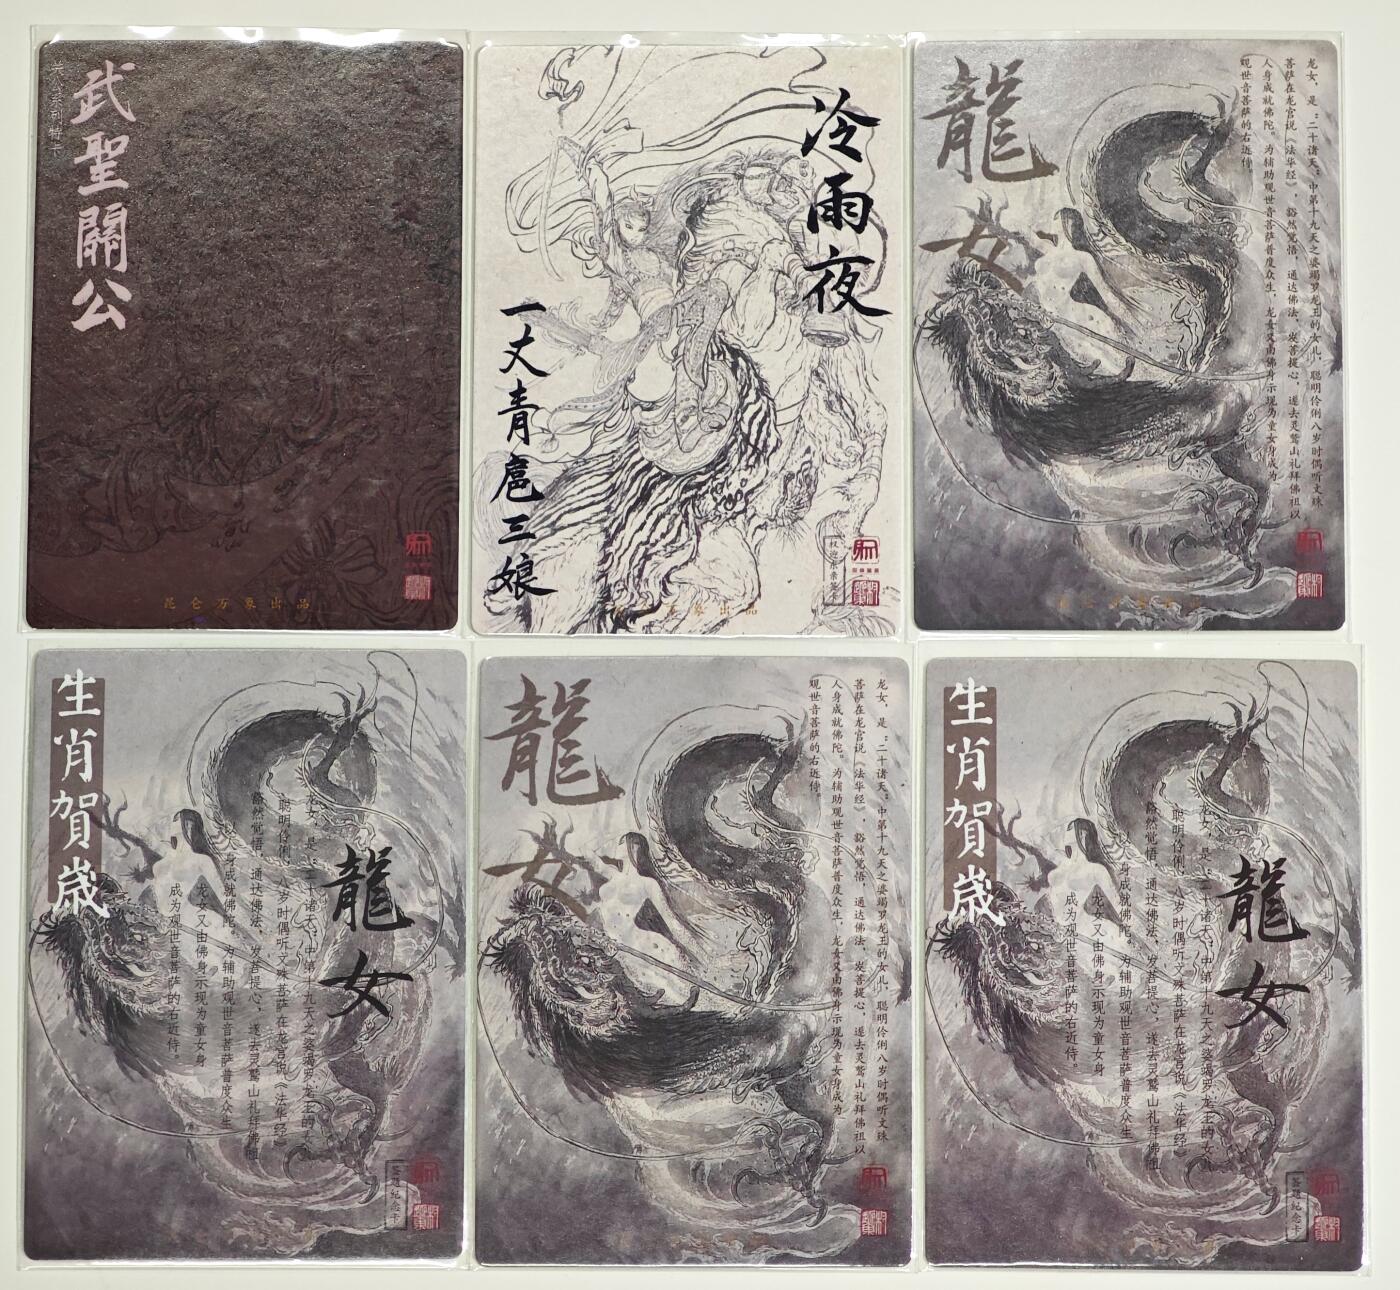 武聖關公
关公系列特卡
昆仑万象出品
冷雨夜
一丈青扈三娘
出品
龍女
龙女，是：二十诸天；中第十九天之婆竭罗龙王的女儿，聪明伶俐八岁时偶听文殊
菩萨在龙宫说《法华经》，豁然觉悟，通达佛法，发菩提心，遂去灵鹫山礼拜佛祖以
人身成就佛陀。为辅助观世音菩萨普度众生，龙女又由佛身示现为童女身成为
观世音菩萨的右近侍。
生肖賀歳
龍女
龙女，是：二十诸天；中第十九天之婆竭罗龙王的女儿
聪明伶俐，八岁时偶听文殊菩萨在龙宫说《法华经》
豁然觉悟，通达佛法，发菩提心，遂去灵鹫山礼拜佛祖
人身成就佛陀。为辅助观世音菩萨普度众生
龙女又由佛身示现为童女身
成为观世音菩萨的右近侍。
题纪念卡
龍女
龙女，是：二十诸天；中第十九天之婆竭罗龙王的女儿，聪明伶俐八岁时偶听文殊
菩萨在龙宫说《法华经》，豁然觉悟，通达佛法，发菩提心，遂去灵鹫山礼拜佛祖以
人身成就佛陀。为辅助观世音菩萨普度众生，龙女又由佛身示现为童女身成为
观世音菩萨的右近侍。
生肖賀歳
龍女
龙女，是：二十诸天；中第十九天之婆竭罗龙王的女儿
聪明伶俐，八岁时偶听文殊菩萨在龙宫说《法华经》
豁然觉悟，通达佛法，发菩提心，遂去灵鹫山礼拜佛祖
人身成就佛陀。为辅助观世音菩萨普度众生
龙女又由佛身示现为童女身
成为观世音菩萨的右近侍。
题纪念卡